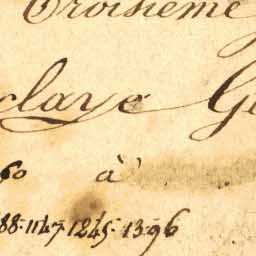 Troisieme
claye G
60 à
88-1147-1245-1396